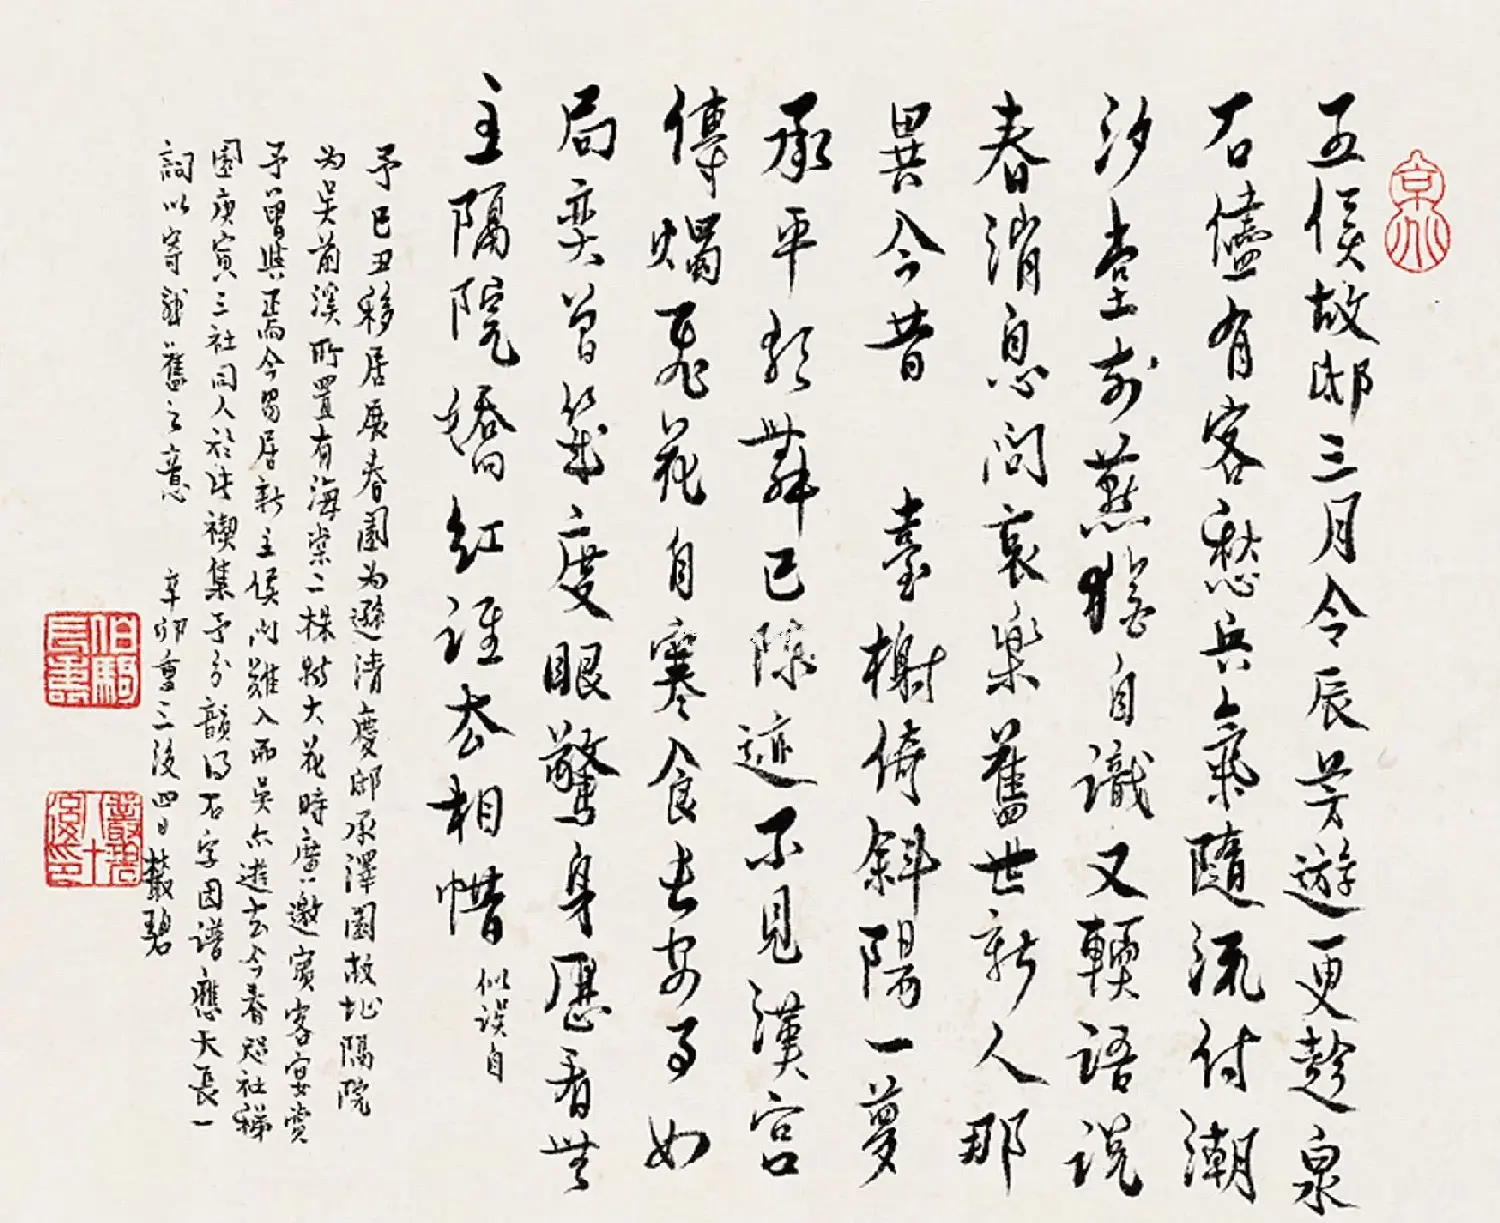 五侯故邸三月令辰芳遊更趁泉
石儘有客愁兵氣隨流付潮
汐堂前燕猶自識又輭語說
春消息問哀樂舊世新人那
異今昔 臺榭倚斜陽一夢
承平歌舞已陳迹不見漢宮
傳燭飛花自寒食長安事如
局奕曾幾度眼驚身歷看無
主隔院嬌紅誰去相惜 似誤自
予己丑移居展春園為遜清慶邸承澤園故址隔院
為吳前溪所置有海棠二株特大花時廣邀賓客宴賞
予曾與焉而今易居新主侯門難入而吳亦逝去今春
園庚寅三社同人於此禊集予分韻得石字因譜應天長一
詞以寄感舊之意 辛卯重三後四日叢碧
京兆
伯駒